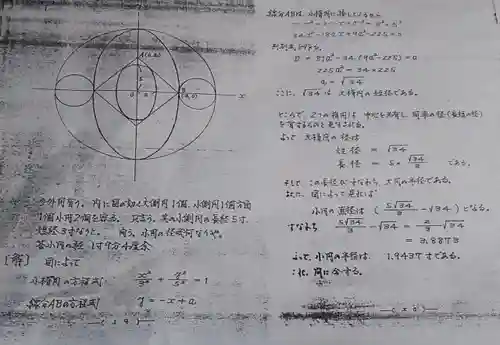 A(0,a)
B(a,0)
O
x
今外円有り、内に図の如く大側円1個、小側円1個方面
1個小円2個を容る。只云う、其の小側円の長径5寸、
短径3寸なりと。問う、小円の径幾何なりや。
答小円の径 1寸9分4厘余
〔解〕 図によって
小楕円の方程式 x²/3² + y²/5² = 1
線分ABの方程式 y = -x + a
線分ABは、小楕円に接しているから
34x² - 18ax + 9a² - 225 = 0
判別式
D = 81a² - 34(9a² - 225) = 0
225a² = 34 × 225
a = √34
ここに、√34 は 大楕円の短径である。
ところで、2つの楕円は 中心を共有し、同率の径(長短の径)
を有するものと見なされる。
よって 大楕円の径は
短径 = √34
長径 = 5 × √34/3 である。
そして この長径がすなわち、大円の半径である。
故に、図によって見れば
小円の直径は (5√34/3 - √34) となる。
すなわち 5√34/3 - √34 = 2/3 √34
= 3.8873
よって、小円の半径は 1.9437寸である。
これ、問に合する。